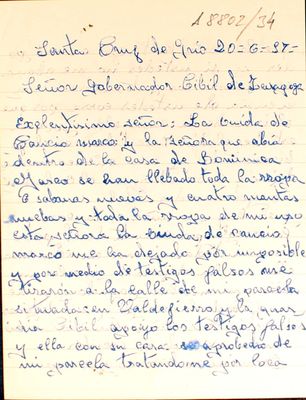 18802/34
Santa Cruz de Grio 20-6-37-
Señor Gobernador Cibil de Zaragoza
Exelentisimo señor: La biuda de
Cancio marco y la señora que abia
dentro de la casa de Dominica
Marco se han llebado toda la rropa
6 sabanas nuevas y cuatro mantas
nuebas y toda la rropa de mi uso
esta señora la biuda de cancio
marco me ha dejado por imposible
y por medio de testigos falsos me
tiraron a la calle de mi parcela
situada: en Valdefierro y la guar
dia Cibil apoyo los testigos falsos
y ella con su cara: se aprobecho de
mi parcela tratandome por loca